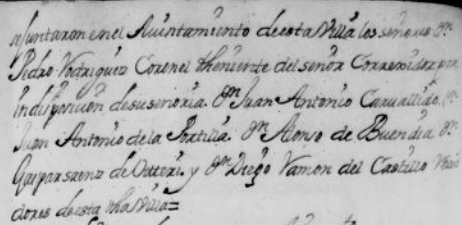 se Juntaron en el Aiuntamiento de esta Villa los señores Dn
Pedro Rodriguez Coronel theniente del señor Correxidor por
indisposicion de su señoria. Dn Juan Antonio Carvallido. Dn
Juan Antonio de la Portilla. Dn Alonso de Buendia Dn
Gaspar saenz de y Dn Diego Ramon del Castillo Rexi
dores de esta dha Villa=